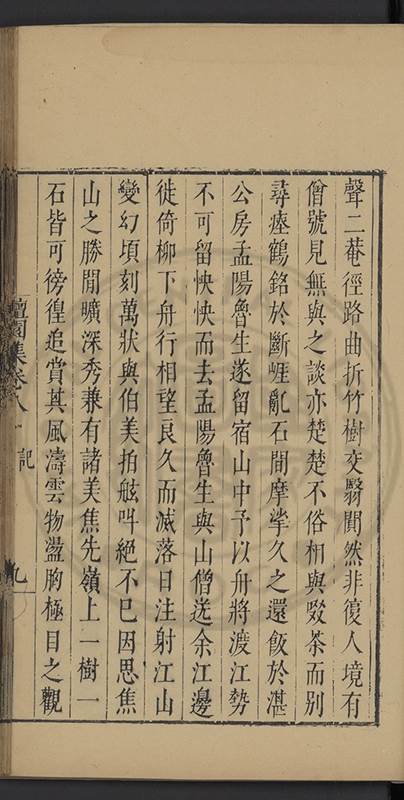 聲二菴徑路曲折竹樹交翳闃然非復人境有
僧號見無與之談亦楚楚不俗相與啜茶而別
尋瘞鶴銘於斷崕亂石間摩挲久之還飯於湛
公房孟陽魯生遂留宿山中予以舟將渡江勢
不可留怏怏而去孟陽魯生與山僧送余江邊
徙倚柳下舟行相望良久而滅落日注射江山
變幻頃刻萬狀與伯美拍舷叫絕不已因思焦
山之勝閒曠深秀兼有諸美焦先嶺上一樹一
石皆可徬徨追賞其風濤雲物盪胸極目之觀
檀園集卷八 記 九